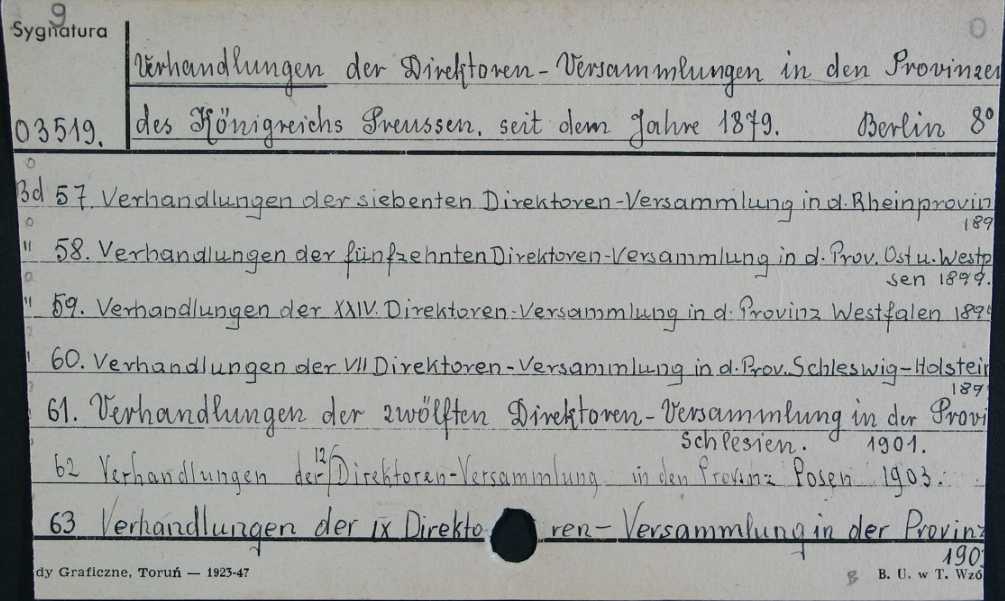 9
Sygnatura
Verhandlungen der Direktoren-Versammlungen in den Provinzen
03519. des Königreichs Preussen, seit dem Jahre 1879. Berlin 8°
Bd 57. Verhandlungen der siebenten Direktoren-Versammlung in d. Rheinprovin
189
" 58. Verhandlungen der fünfzehnten Direktoren-Versammlung in d. Prov. Ost u. Westp
sen 1899.
" 59. Verhandlungen der XXIV. Direktoren-Versammlung in d. Provinz Westfalen 189
60. Verhandlungen der VII Direktoren-Versammlung in d. Prov. Schleswig-Holstein
189
61. Verhandlungen der zwölften Direktoren-Versammlung in der Provi
Schlesien. 1901.
62 Verhandlungen der 12 Direktoren-Versammlung in den Provinz Posen 1903.
63 Verhandlungen der IX Direktoren-Versammlung in der Provinz
190
dy Graficzne, Toruń — 1923-47 B B. U. w T. Wzó